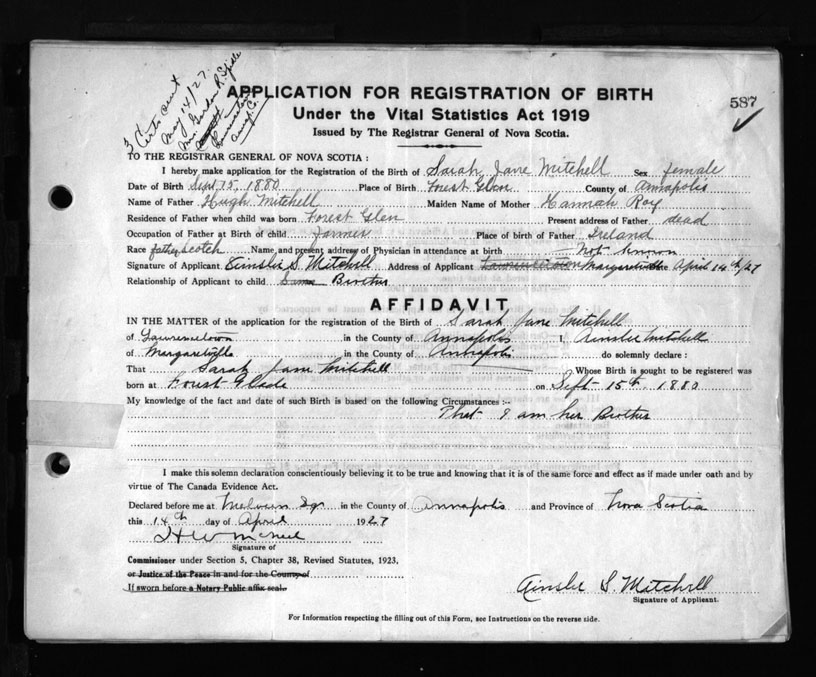 3 Certs sent
May 14/27.
Mrs. Gordon R.
Lawrencetown
Annap. Co.
APPLICATION FOR REGISTRATION OF BIRTH
587
Under the Vital Statistics Act 1919
Issued by The Registrar General of Nova Scotia.
TO THE REGISTRAR GENERAL OF NOVA SCOTIA :
I hereby make application for the Registration of the Birth of Sarah Jane Mitchell Sex female
Date of Birth Sept 15, 1880 Place of Birth Forest Glen County of Annapolis
Name of Father Hugh Mitchell Maiden Name of Mother Hannah Roy
Residence of Father when child was born Forest Glen Present address of Father dead
Occupation of Father at Birth of child farmer Place of birth of Father Ireland
Race father Scotch Name and present address of Physician in attendance at birth Not known
Signature of Applicant Ainslie S. Mitchell Address of Applicant Lawrencetown Margaretville April 14th/27
Relationship of Applicant to child Same Brother
AFFIDAVIT
IN THE MATTER of the application for the registration of the Birth of Sarah Jane Mitchell
of Lawrencetown in the County of Annapolis I, Ainslie Mitchell
of Margaretville in the County of Annapolis do solemnly declare :
That Sarah Jane Mitchell Whose Birth is sought to be registered was
born at Forest Glade on Sept 15th, 1880
My knowledge of the fact and date of such Birth is based on the following Circumstances :-
That I am her Brother
I make this solemn declaration conscientiously believing it to be true and knowing that it is of the same force and effect as if made under oath and by
virtue of The Canada Evidence Act.
Declared before me at Melvern Sq. in the County of Annapolis and Province of Nova Scotia
this 14th day of April 1927
H W McNeil
Signature of
Commissioner under Section 5, Chapter 38, Revised Statutes, 1923,
or Justice of the Peace in and for the County of
If sworn before a Notary Public affix seal.
Ainslie S. Mitchell
Signature of Applicant.
For Information respecting the filling out of this Form, see Instructions on the reverse side.